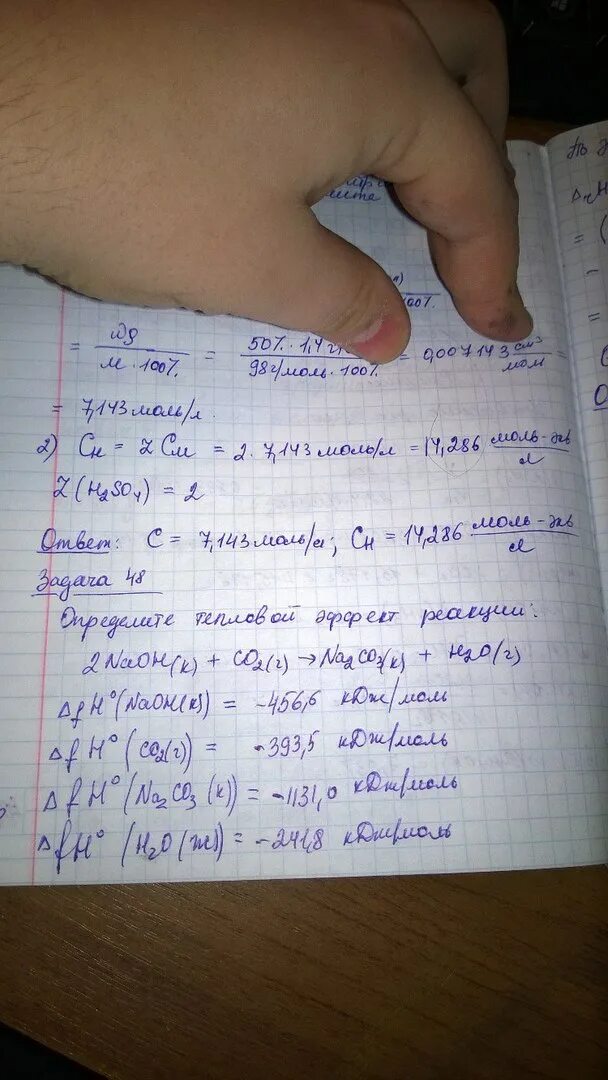 = ωρ / M · 100% = 50% · 1,4 г/ / 98 г/моль · 100% = 0,007143 см³/моль =
= 7,143 моль/л.
2) Сн = Z См = 2 · 7,143 моль/л = 14,286 моль-экв/л
Z (H₂SO₄) = 2
Ответ: С = 7,143 моль/л; Сн = 14,286 моль-экв/л
Задача 48
Определите тепловой эффект реакции:
2NaOH(к) + CO₂(г) → Na₂CO₃(к) + H₂O(г)
ΔfH°(NaOH(к)) = -456,6 кДж/моль
ΔfH°(CO₂(г)) = -393,5 кДж/моль
ΔfH°(Na₂CO₃(к)) = -1131,0 кДж/моль
ΔfH°(H₂O(ж)) = -241,8 кДж/моль